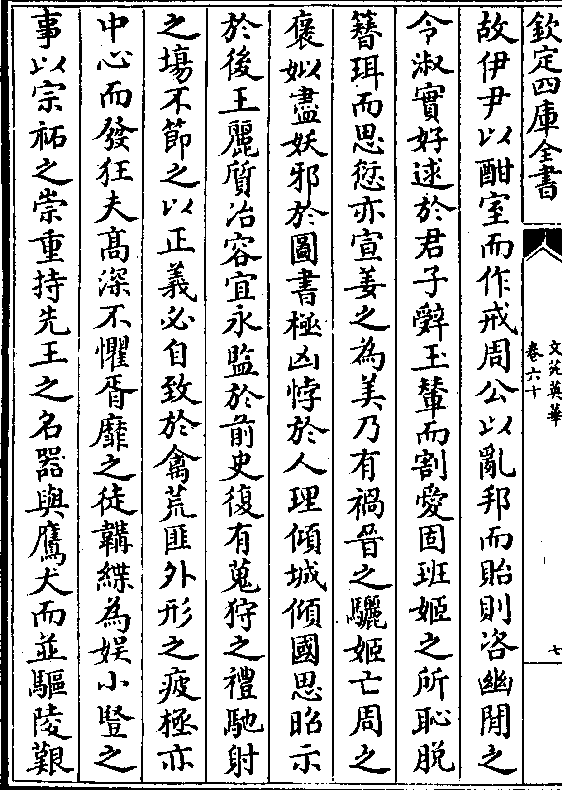 欽定四庫全書
文苑英華
卷六十
七
故伊尹以酣室而作戒周公以亂邦而貽則咨幽閒之
令淑實好逑於君子辭玉輦而割愛固班姬之所恥脫
簪珥而思愆亦宣姜之為美乃有禍晉之驪姬亡周之
褒姒盡妖邪於圖書極凶悖於人理傾城傾國思昭示
於後王麗質冶容宜永監於前史復有蒐狩之禮馳射
之場不節之以正義必自致於禽荒匪外形之疲極亦
中心而發狂夫高深不懼胥靡之徒韝緤為娱小豎之
事以宗祏之崇重持先王之名器與鷹犬而並驅陵艱